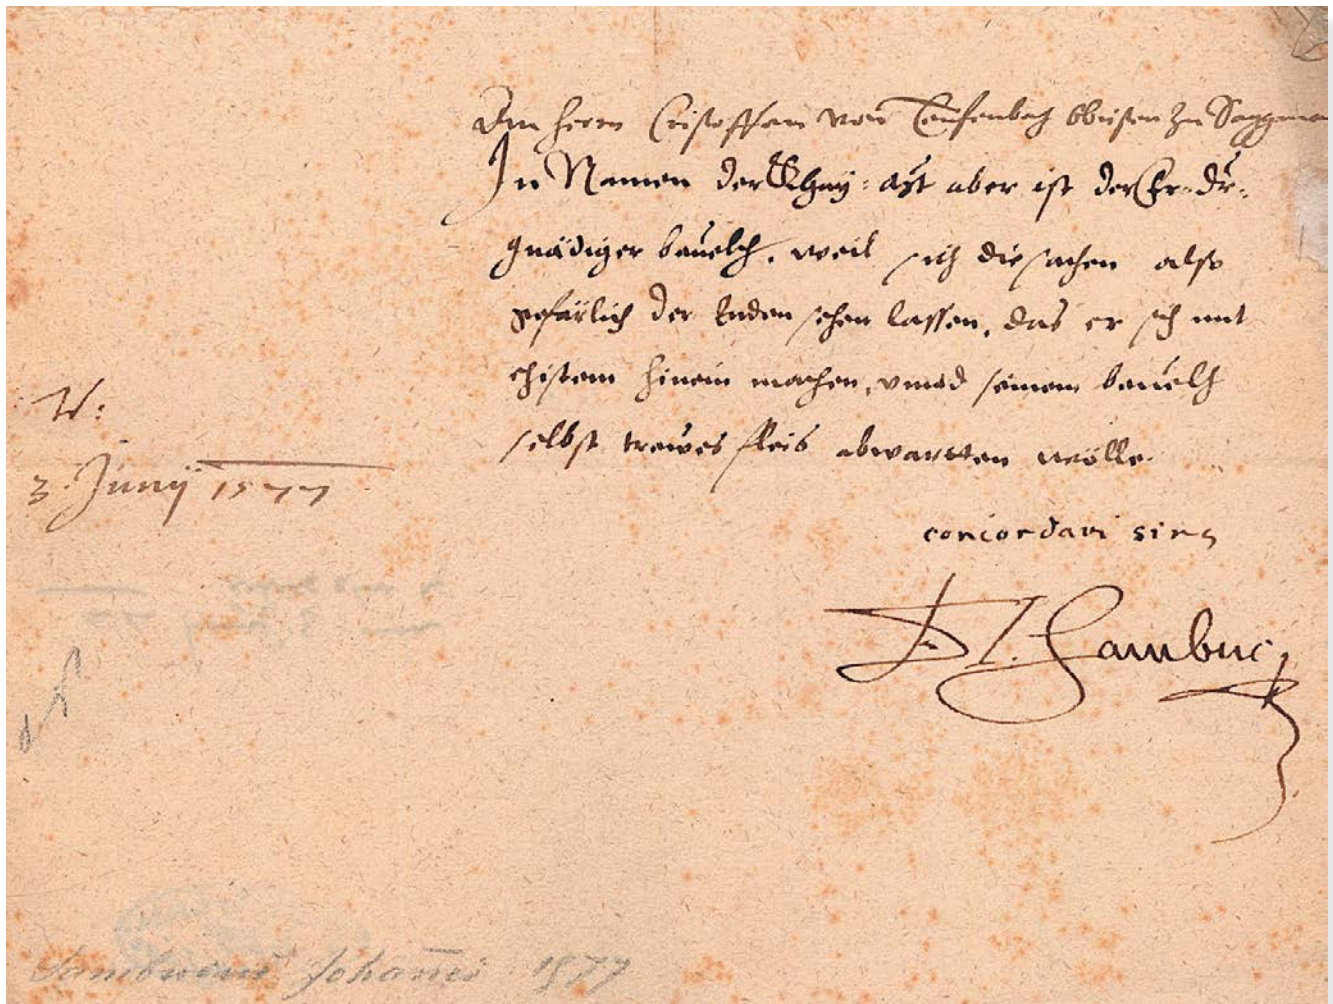 Dem Herrn Cristoffen von Teufenbach Obristen zu
In Namen der Khay: Mt aber ist der Er: Dr:
gnädiger beuelch, weil sich die sachen also
gefärlich der Enden sehen lassen, das er sich mit
ehistem hinein machen, vnnd seinem beuelch
selbst trewes fleis abwartten wölle.
W:
3. Junij 1577
concordavi
Dr I. Sambuc
Johannes 1577